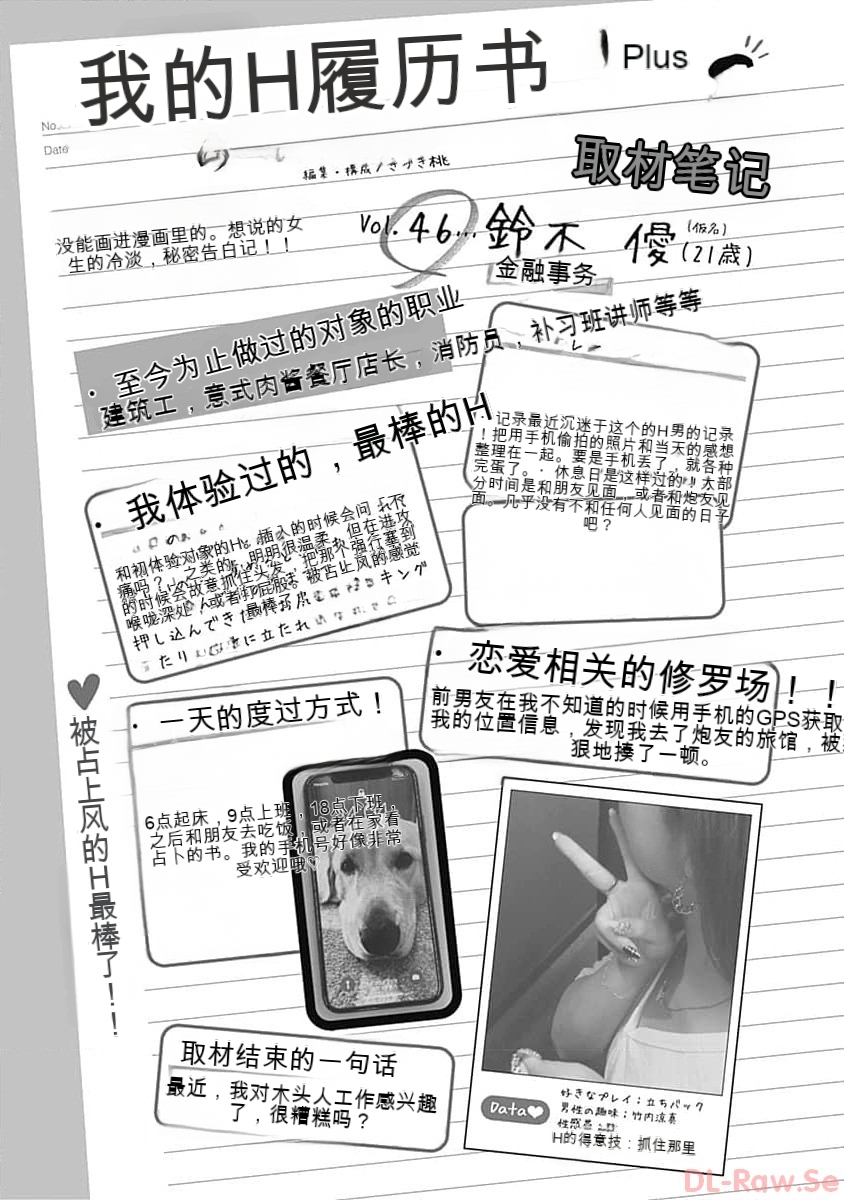 我的H履历书
Plus
No.
Date
編集・構成/きづき桃
取材笔记
没能画进漫画里的。想说的女
生的冷淡，秘密告白记！！
Vol. 46... 鈴木 優 (仮名) (21歳)
金融事务
· 至今为止做过的对象的职业
建筑工，意式肉酱餐厅店长，消防员，补习班讲师等等
· 记录最近沉迷于这个的H男的记录
！把用手机偷拍的照片和当天的感想
整理在一起。要是手机丢了，就各种
完蛋了。· 休息日是这样过的！大部
分时间是和朋友见面，或者和炮友见
面。几乎没有不和任何人见面的日子
吧？
· 我体验过的，最棒的H
和初体验对象的H。插入的时候会问「不
痛吗？」之类的，明明很温柔，但在进攻
的时候会故意抓住头发，把那个强行塞到
喉咙深处，或者打屁股。被占上风的感觉
最棒了
キング
押し込んできた
たり
に立たれ
· 恋爱相关的修罗场！！
前男友在我不知道的时候用手机的GPS获取
我的位置信息，发现我去了炮友的旅馆，被
狠地揍了一顿。
· 一天的度过方式！
6点起床，9点上班，18点下班，
之后和朋友去吃饭，或者在家看
占卜的书。我的手机号好像非常
受欢迎哦♡
♥被占上风的H最棒了!!
取材结束的一句话
最近，我对木头人工作感兴趣
了，很糟糕吗？
Data♥
好きなプレイ：立ちバック
男性の趣味：竹内涼真
性感帯：
H的得意技：抓住那里
DL-Raw.Se